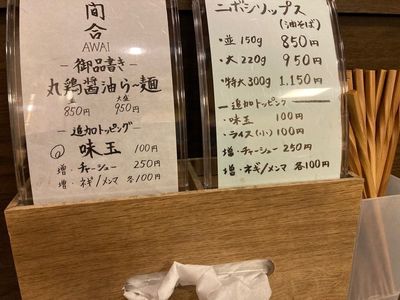 間合
AWAI
―御品書き―
丸鶏醤油ら〜麺
並 大盛
850円 950円
―追加トッピング―
味玉 100円
増・チャーシュー 250円
増・ネギ/メンマ 各100円
ニボシソップス
(油そば)
・並 150g 850円
・大 220g 950円
・特大 300g 1.150円
―追加トッピング―
・味玉 100円
・ライス(小) 100円
増・チャーシュー 250円
増・ネギ/メンマ 各100円